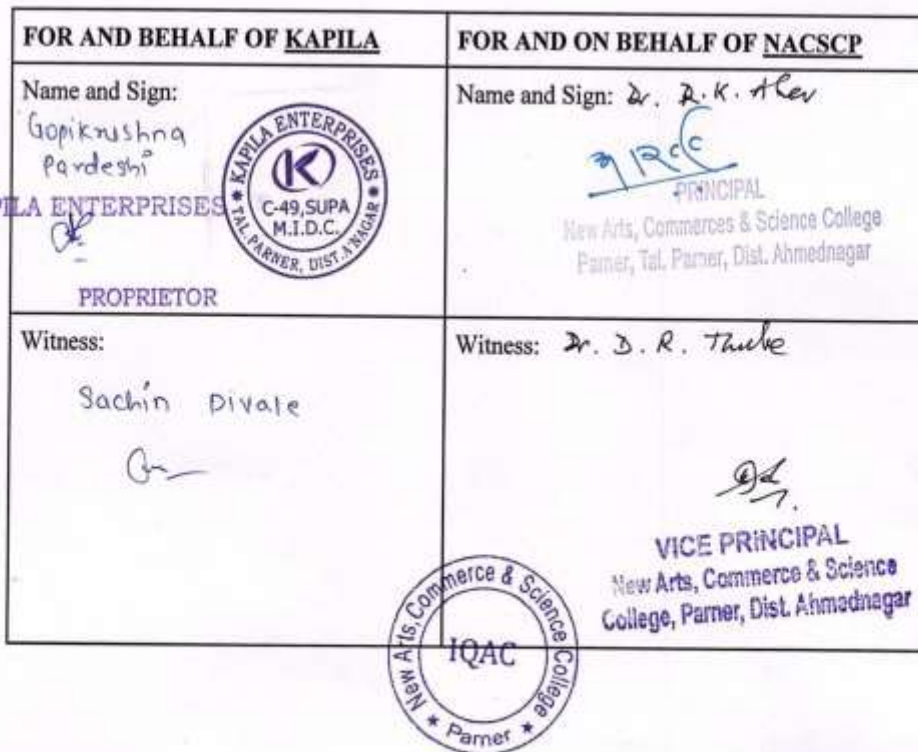 FOR AND BEHALF OF KAPILA
Name and Sign:
Gopikrushna
Pardeshi
PILA ENTERPRISES
PROPRIETOR
★ KAPILA ENTERPRISES ★
K
C-49,SUPA
M.I.D.C.
TAL.PARNER, DIST.A'NAGAR
FOR AND ON BEHALF OF NACSCP
Name and Sign: Dr. R.K. Aher
PRINCIPAL
New Arts, Commerces & Science College
Parner, Tal. Parner, Dist. Ahmednagar
Witness:
Sachin Divate
Witness: Dr. D. R. Thube
VICE PRINCIPAL
New Arts, Commerce & Science
College, Parner, Dist. Ahmednagar
New Arts, Commerce & Science College
IQAC
★ Parner ★